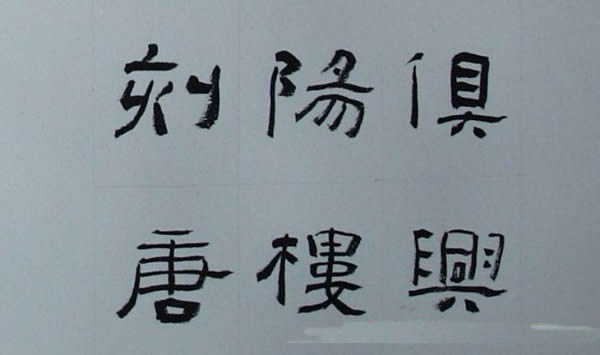 俱興
陽樓
刻唐